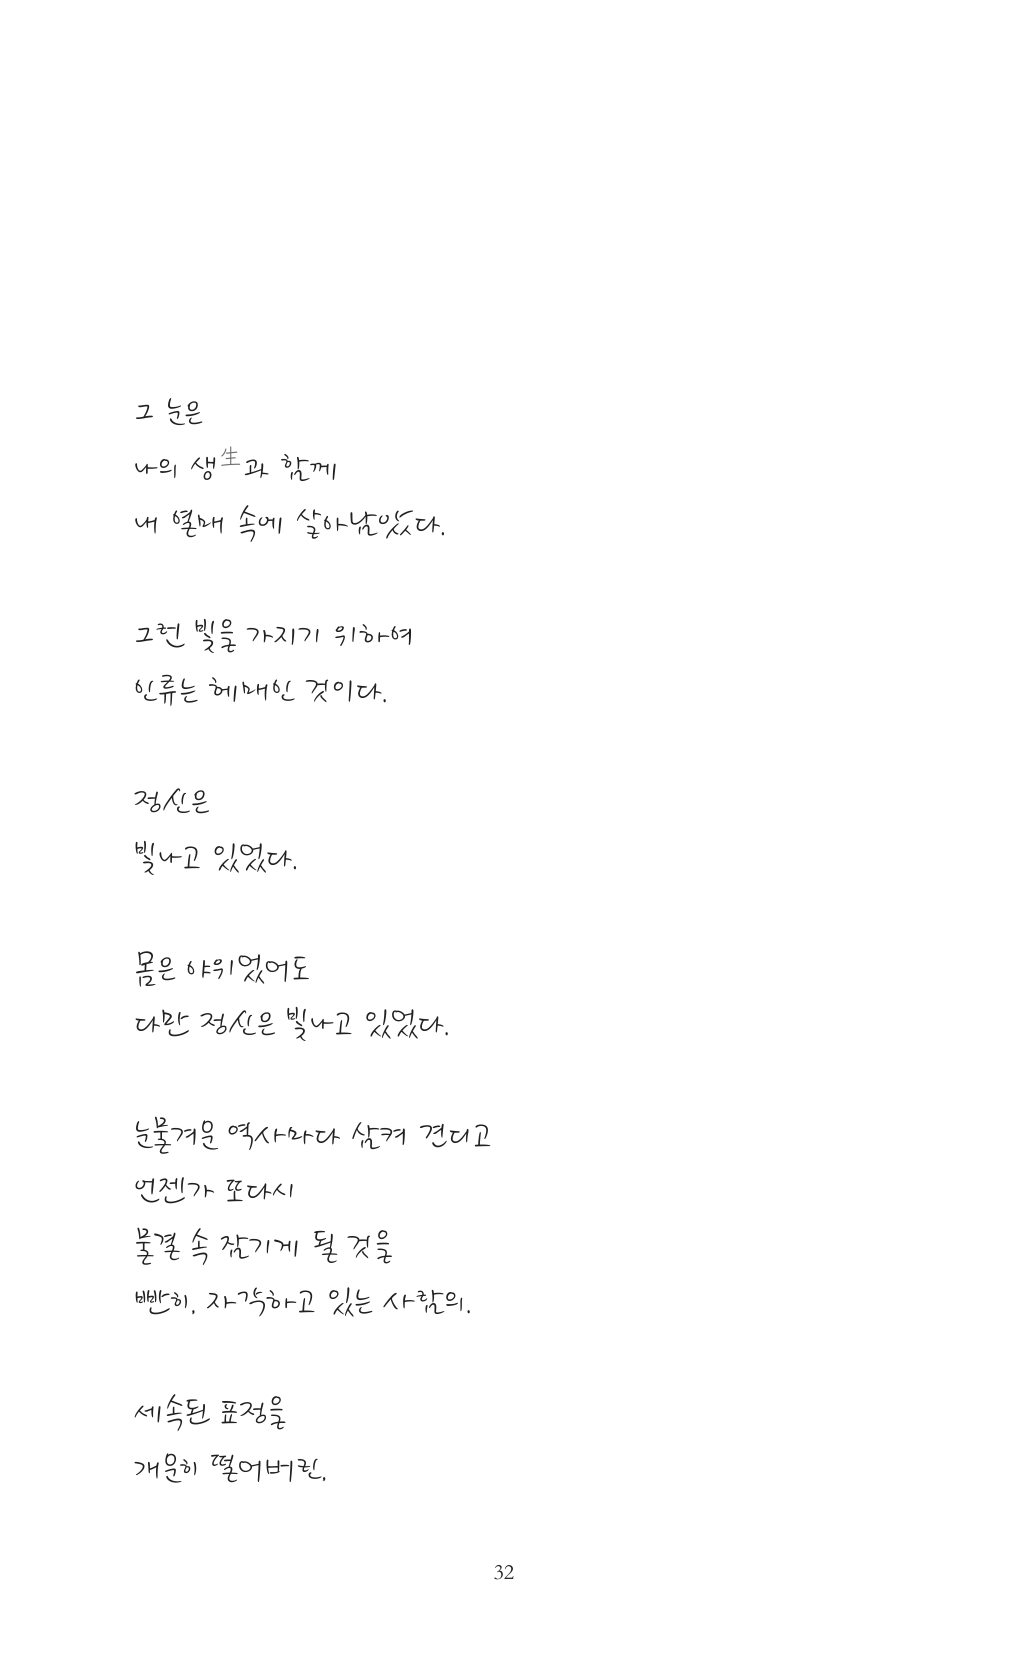 그 눈은
나의 생生과 함께
내 열매 속에 살아남았다.
그런 빛을 가지기 위하여
인류는 헤매인 것이다.
정신은
빛나고 있었다.
몸은 야위었어도
다만 정신은 빛나고 있었다.
눈물겨운 역사마다 삼켜 견디고
언젠가 또다시
물결 속 잠기게 될 것을
빤히, 자각하고 있는 사람의.
세속된 표정을
개운히 떨어버린,
32